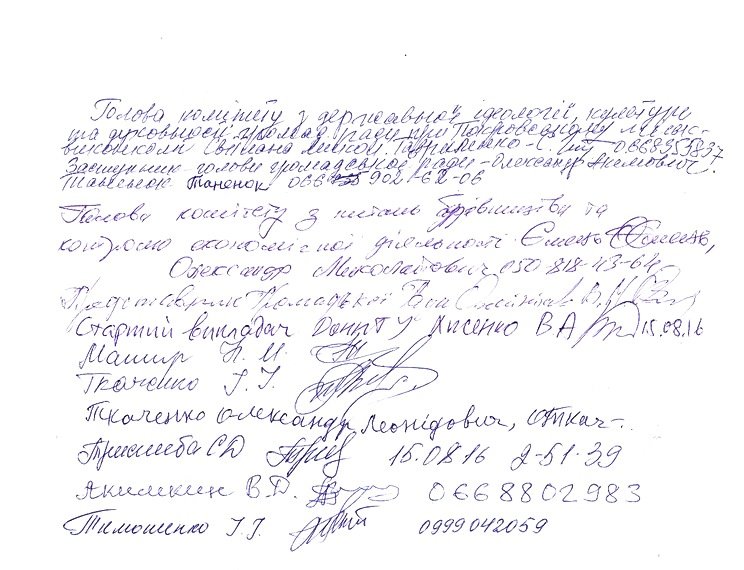 Голова комітету з державної ідеології, культури
та духовності громад. ради при Покровському
виконкомі Світлана Гавриленко С.
Заступник голови громадської ради - Олександр Якимович
Таненок Таненок 066 902-62-06
Голова комітету з питань будівництва та
контролю економічної діяльності Ємець
Олександр Миколайович, 050-818-43-64
Представник Громадської Ради
Старший викладач ДонНТУ Лисенко В А 15.08.16
Машир Н. И.
Ткаченко І. І.
Ткаченко Олександр Леонідович,
СД 15.08.16 2-51-39
Якимкин В.Д. 0668802983
Тимошенко І. І. 0999042059